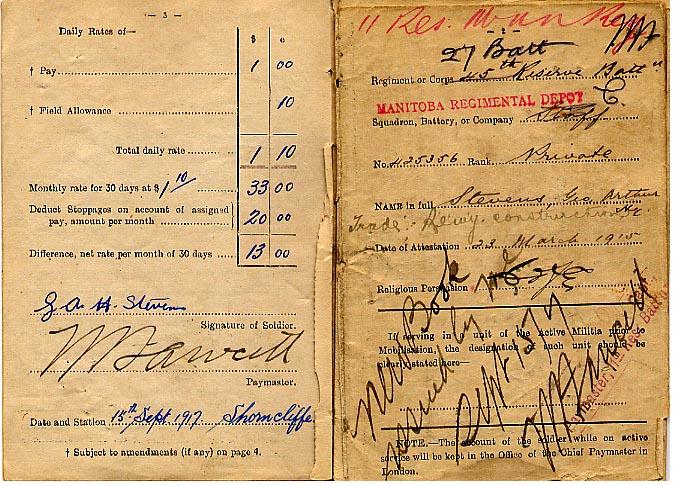 — 3 —
Daily Rates of—
$ c
† Pay 1 00
† Field Allowance 10
Total daily rate 1 10
Monthly rate for 30 days at $ 1 10 33 00
Deduct Stoppages on account of assigned
pay, amount per month 20 00
Difference, net rate per month of 30 days 13 00
G A H Stevens
Signature of Soldier.
Paymaster.
Date and Station 15th Sept 1917 Shorncliffe
† Subject to amendments (if any) on page 4.
11 Res.
— 2 —
27 Batt
Regiment or Corps 45th Reserve Batt
MANITOBA REGIMENTAL DEPOT
Squadron, Battery, or Company Staff
No. 425356 Rank Private
NAME in full Stevens, Geo Arthur
Trade:- Heavy construction
Date of Attestation 23 March 1915
Religious Persuasion
If serving in a unit of the Active Militia prior to
Mobilisation, the designation of such unit should be
clearly stated here—
New Book
issued by me
Sept 15/17
Paymaster, 11th Res. Batt.
NOTE.—The account of the soldier while on active
service will be kept in the Office of the Chief Paymaster in
London.